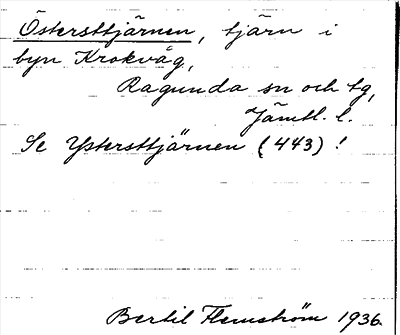 Östersttjärnen, tjärn i
byn Krokvåg,
Ragunda sn och tg,
Jämtl. l.
Se Ystersttjärnen (443) !
Bertil Flemström 1936.